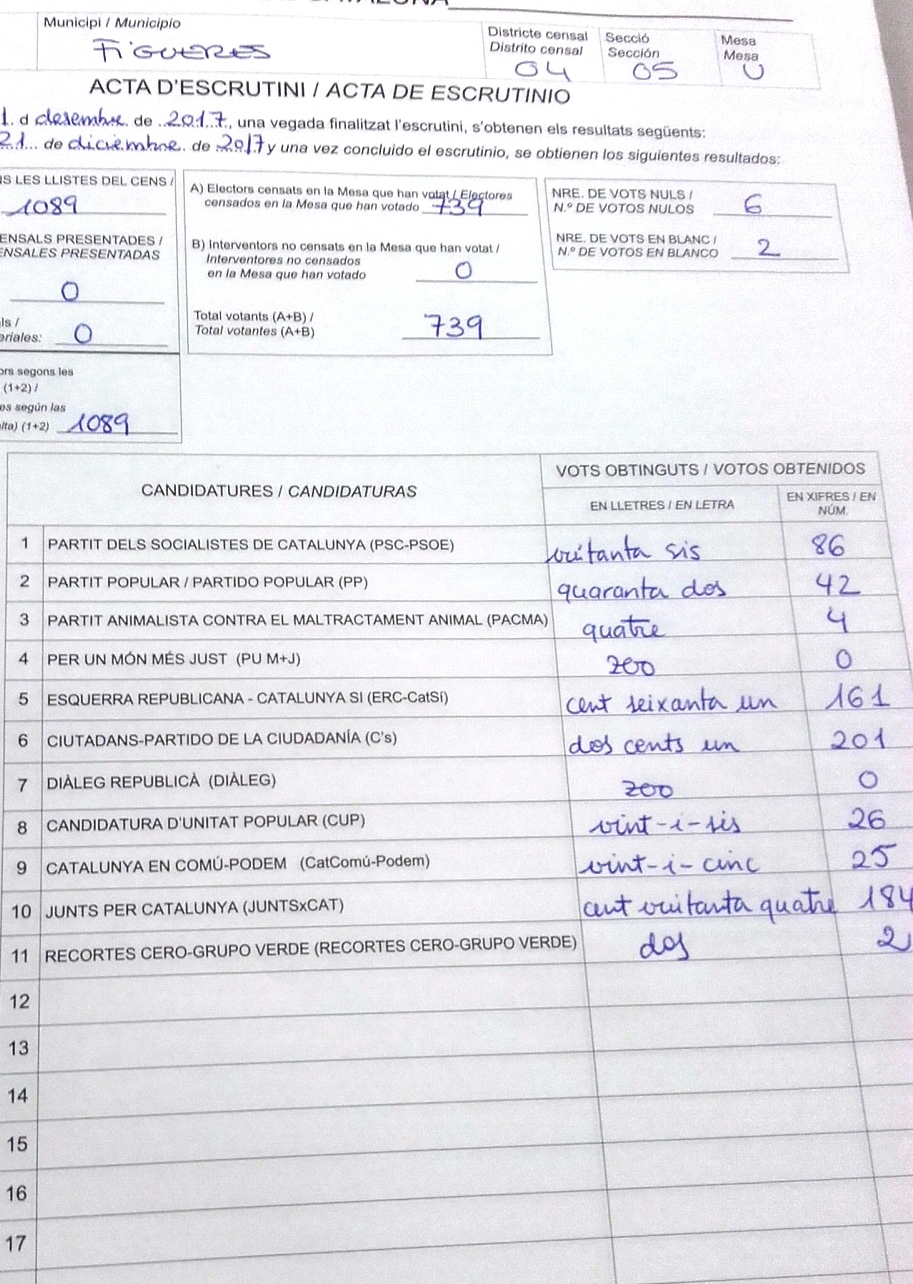 Municipi / Municipio
FIGUERES
Districte censal
Distrito censal
04
Secció
Sección
05
Mesa
Mesa
U
ACTA D'ESCRUTINI / ACTA DE ESCRUTINIO
1. d desembre. de ..2017.., una vegada finalitzat l'escrutini, s'obtenen els resultats següents:
21... de diciembre. de .2017 y una vez concluido el escrutinio, se obtienen los siguientes resultados:
LES LLISTES DEL CENS /
1089
PRESENTADES /
PRESENTADAS
0
0
segons les
(1+2) /
según las
(1+2) 1089
A) Electors censats en la Mesa que han votat / Electores
censados en la Mesa que han votado 739
B) Interventors no censats en la Mesa que han votat /
Interventores no censados
en la Mesa que han votado 0
Total votants (A+B) /
Total votantes (A+B) 739
NRE. DE VOTS NULS /
N.º DE VOTOS NULOS 6
NRE. DE VOTS EN BLANC /
N.º DE VOTOS EN BLANCO 2
CANDIDATURES / CANDIDATURAS
VOTS OBTINGUTS / VOTOS OBTENIDOS
EN LLETRES / EN LETRA
EN XIFRES / EN
NÚM.
1 PARTIT DELS SOCIALISTES DE CATALUNYA (PSC-PSOE) vuitanta sis 86
2 PARTIT POPULAR / PARTIDO POPULAR (PP) quaranta dos 42
3 PARTIT ANIMALISTA CONTRA EL MALTRACTAMENT ANIMAL (PACMA) quatre 4
4 PER UN MÓN MÉS JUST (PU M+J) zero 0
5 ESQUERRA REPUBLICANA - CATALUNYA SI (ERC-CatSí) cent seixanta un 161
6 CIUTADANS-PARTIDO DE LA CIUDADANÍA (C's) dos cents un 201
7 DIÀLEG REPUBLICÀ (DIÀLEG) zero 0
8 CANDIDATURA D'UNITAT POPULAR (CUP) vint-i-sis 26
9 CATALUNYA EN COMÚ-PODEM (CatComú-Podem) vint-i-cinc 25
10 JUNTS PER CATALUNYA (JUNTSxCAT) cent vuitanta quatre 184
11 RECORTES CERO-GRUPO VERDE (RECORTES CERO-GRUPO VERDE) dos 2
12
13
14
15
16
17